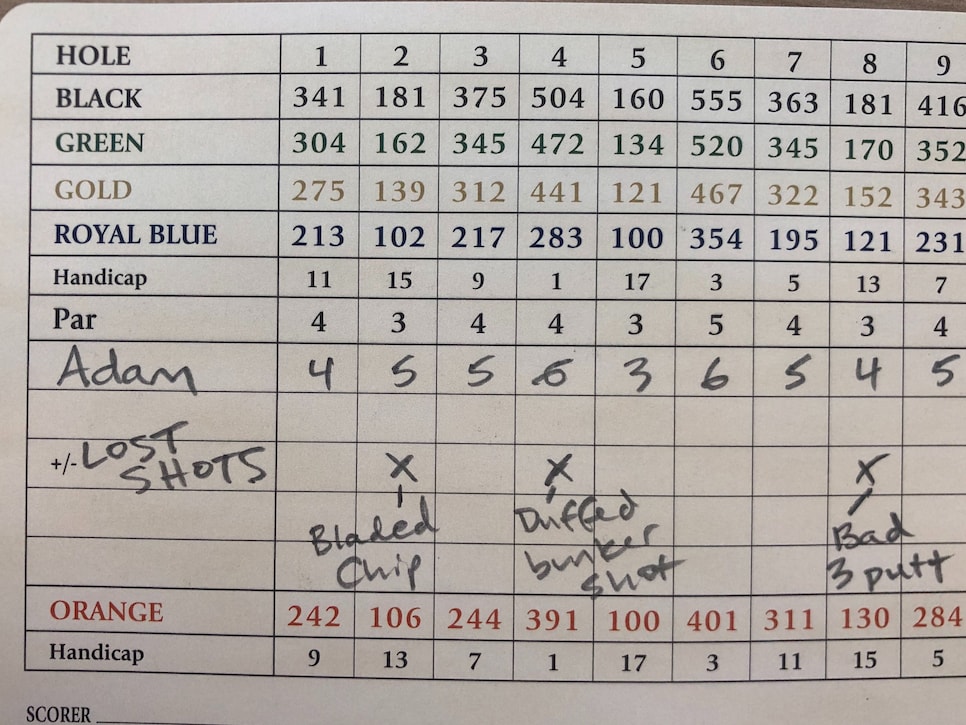 HOLE 1 2 3 4 5 6 7 8 9
BLACK 341 181 375 504 160 555 363 181 416
GREEN 304 162 345 472 134 520 345 170 352
GOLD 275 139 312 441 121 467 322 152 343
ROYAL BLUE 213 102 217 283 100 354 195 121 231
Handicap 11 15 9 1 17 3 5 13 7
Par 4 3 4 4 3 5 4 3 4
Adam 4 5 5 3 6 5 4 5
+/- LOST X X X
SHOTS
Bladed Duffed Bad
Chip bunker 3 putt
shot
ORANGE 242 106 244 391 100 401 311 130 284
Handicap 9 13 7 1 17 3 11 15 5
SCORER